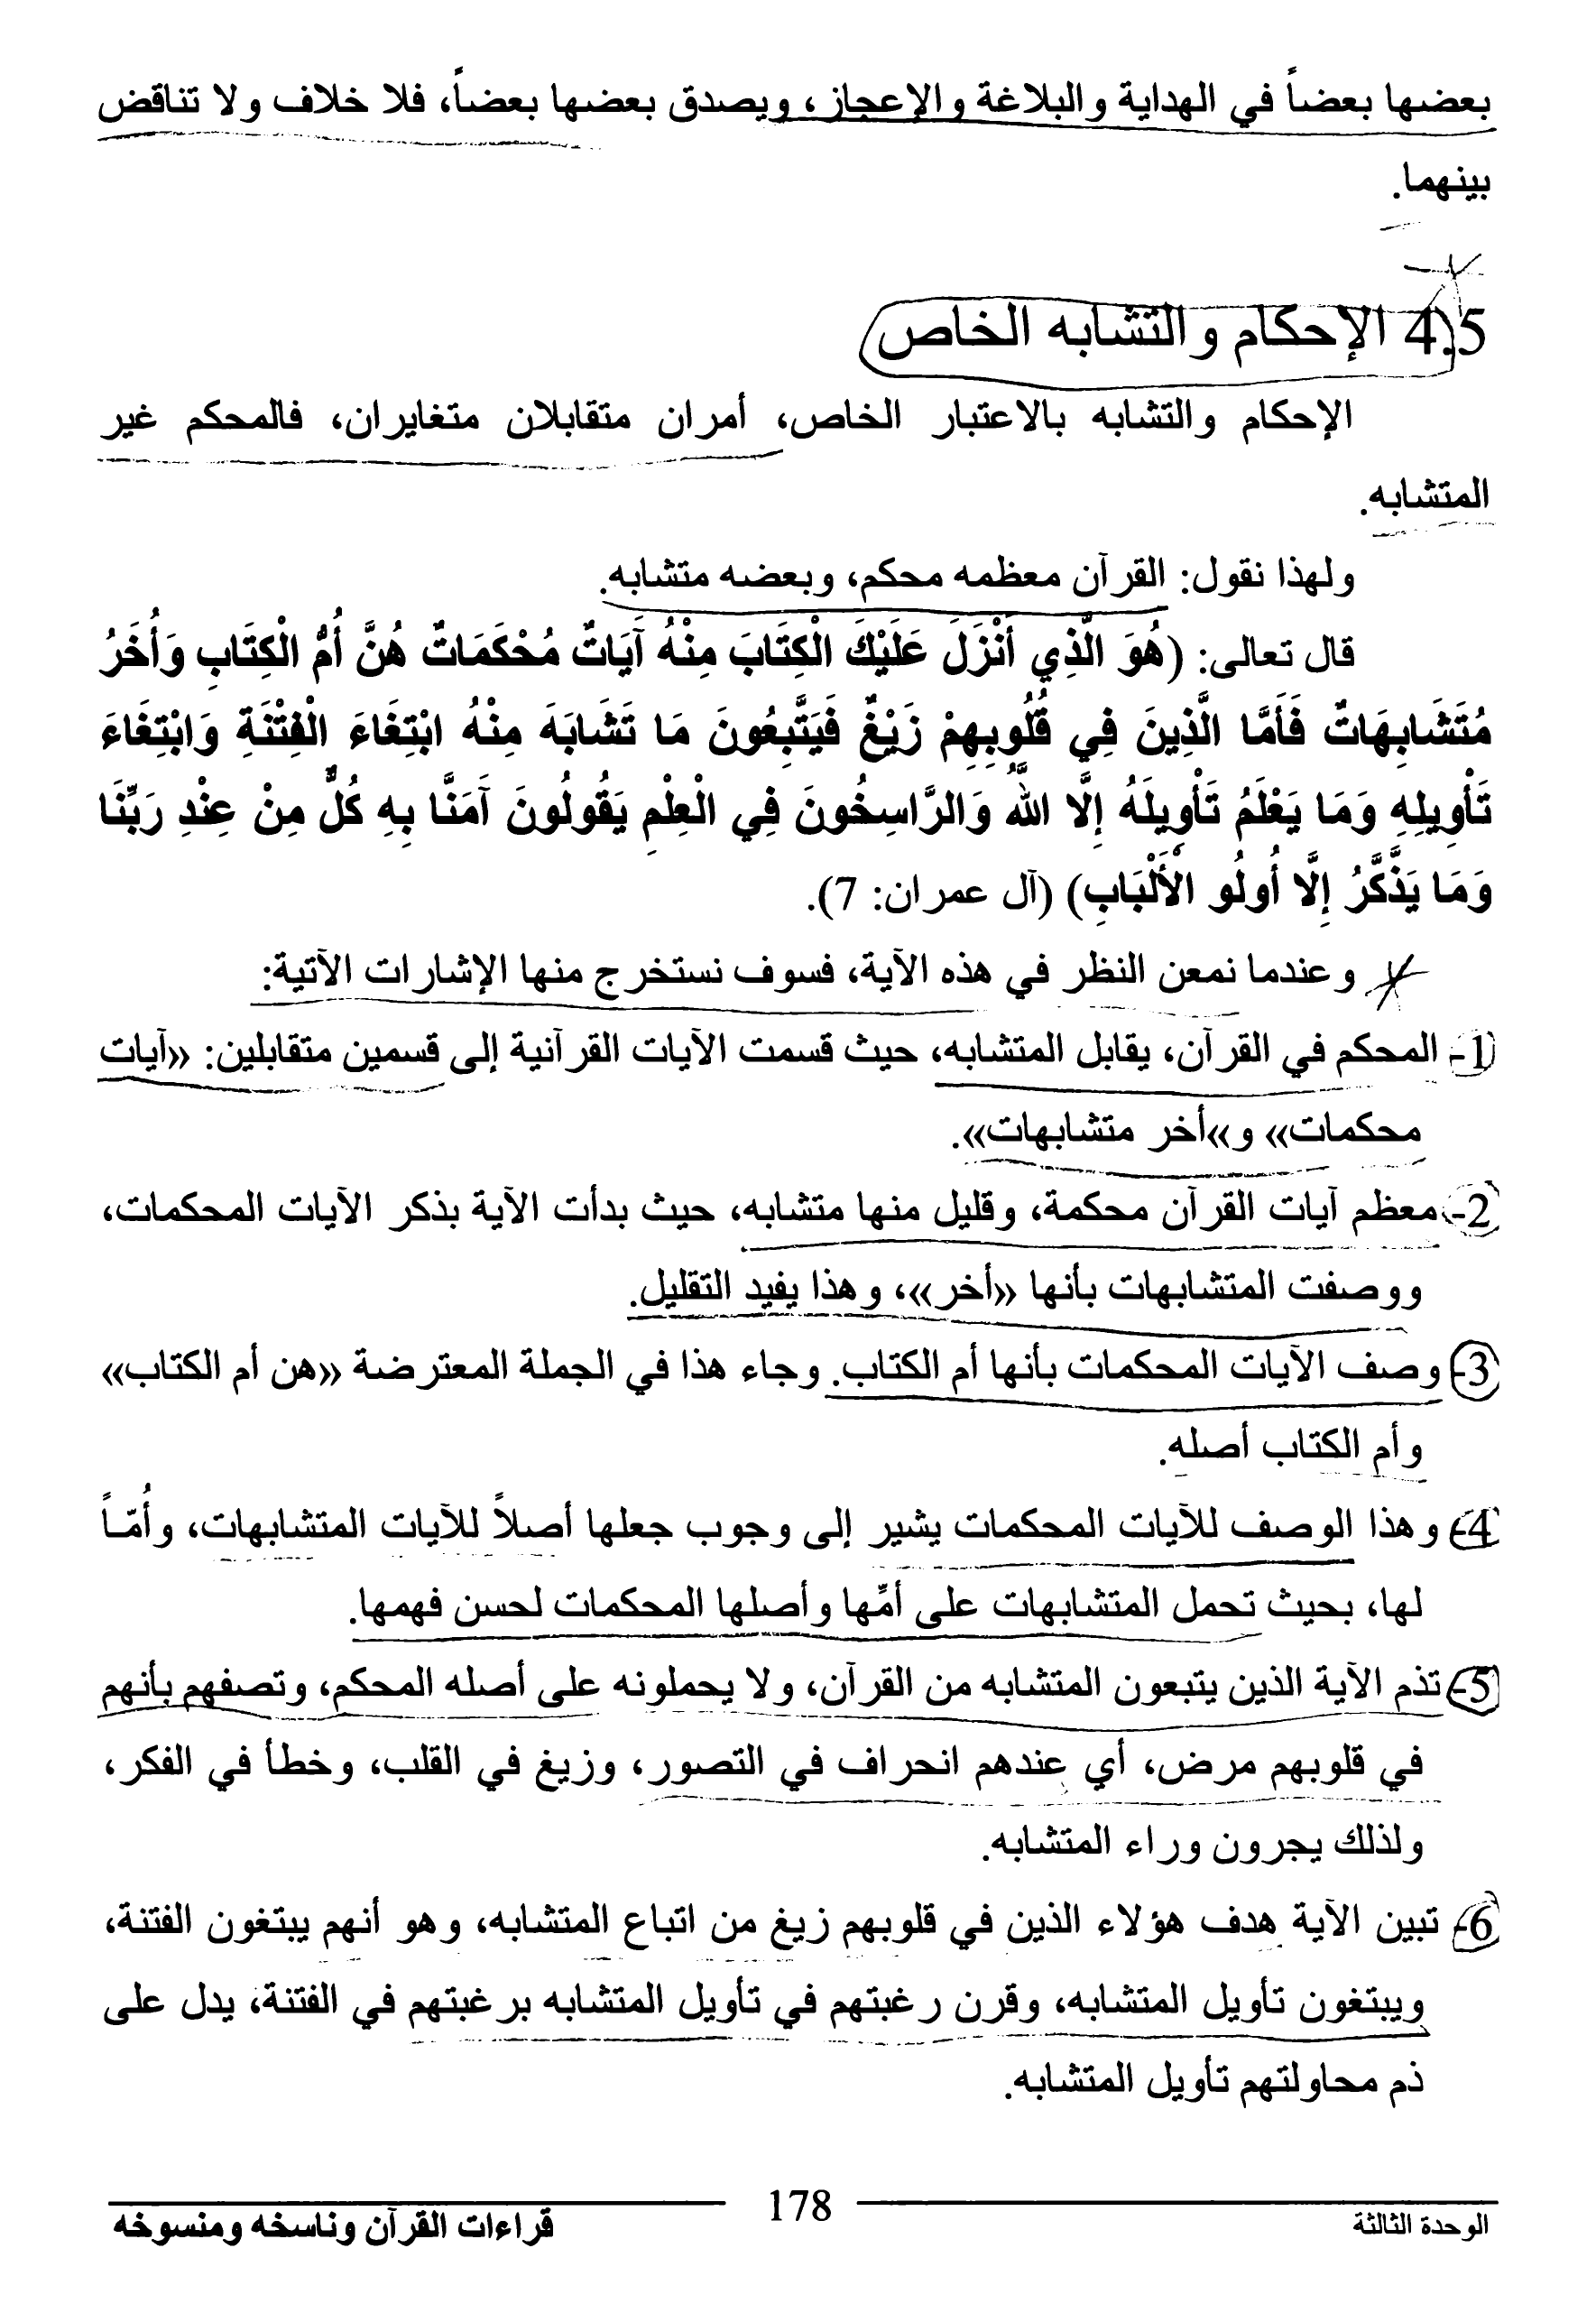 بعضها بعضاً في الهداية والبلاغة والإعجاز، ويصدق بعضها بعضاً، فلا خلاف ولا تناقض
بينهما.
4.5 الإحكام والتشابه الخاص
الإحكام والتشابه بالاعتبار الخاص، أمران متقابلان متغايران، فالمحكم غير
المتشابه.
ولهذا نقول: القرآن معظمه محكم، وبعضه متشابه.
قال تعالى: (هُوَ الَّذِي أَنْزَلَ عَلَيْكَ الْكِتَابَ مِنْهُ آَيَاتٌ مُحْكَمَاتٌ هُنَّ أُمُّ الْكِتَابِ وَأُخَرُ
مُتَشَابِهَاتٌ فَأَمَّا الَّذِينَ فِي قُلُوبِهِمْ زَيْغٌ فَيَتَّبِعُونَ مَا تَشَابَهَ مِنْهُ ابْتِغَاءَ الْفِتْنَةِ وَابْتِغَاءَ
تَأْوِيلِهِ وَمَا يَعْلَمُ تَأْوِيلَهُ إِلَّا اللَّهُ وَالرَّاسِخُونَ فِي الْعِلْمِ يَقُولُونَ آَمَنَّا بِهِ كُلٌّ مِنْ عِنْدِ رَبِّنَا
وَمَا يَذَّكَّرُ إِلَّا أُولُو الْأَلْبَابِ) (آل عمران: 7).
وعندما نمعن النظر في هذه الآية، فسوف نستخرج منها الإشارات الآتية:
1- المحكم في القرآن، يقابل المتشابه، حيث قسمت الآيات القرآنية إلى قسمين متقابلين: «آيات
محكمات» و»أخر متشابهات».
2- معظم آيات القرآن محكمة، وقليل منها متشابه، حيث بدأت الآية بذكر الآيات المحكمات،
ووصفت المتشابهات بأنها «أخر»، وهذا يفيد التقليل.
3- وصف الآيات المحكمات بأنها أم الكتاب. وجاء هذا في الجملة المعترضة «هن أم الكتاب»
وأم الكتاب أصله.
4- وهذا الوصف للآيات المحكمات يشير إلى وجوب جعلها أصلاً للآيات المتشابهات، وأُمّاً
لها، بحيث تحمل المتشابهات على أمِّها وأصلها المحكمات لحسن فهمها.
5- تذم الآية الذين يتبعون المتشابه من القرآن، ولا يحملونه على أصله المحكم، وتصفهم بأنهم
في قلوبهم مرض، أي عندهم انحراف في التصور، وزيغ في القلب، وخطأ في الفكر،
ولذلك يجرون وراء المتشابه.
6- تبين الآية هدف هؤلاء الذين في قلوبهم زيغ من اتباع المتشابه، وهو أنهم يبتغون الفتنة،
ويبتغون تأويل المتشابه، وقرن رغبتهم في تأويل المتشابه برغبتهم في الفتنة، يدل على
ذم محاولتهم تأويل المتشابه.
الوحدة الثالثة
178
قراءات القرآن وناسخه ومنسوخه